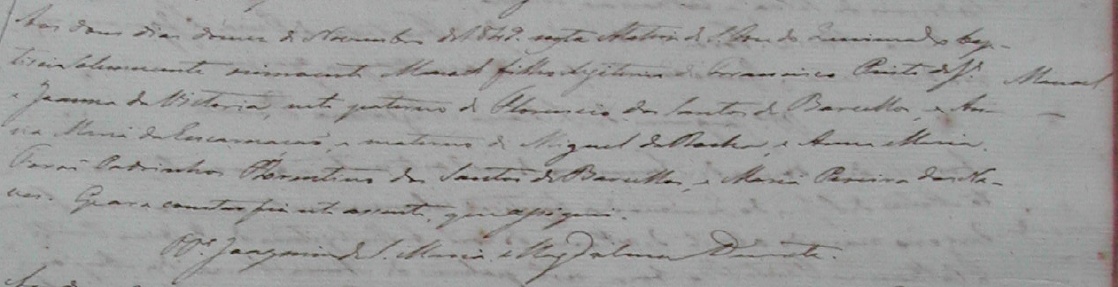 Aos dous dias do mez de Novembro de 1842 nesta Matriz de S. Jose do bap-
tisei solemnemente innocente Manoel filho legitimo de Francisco Pinto de Manoel
e Joanna da Victoria, neto paterno de Florencio dos Santos de Barcellos, e An-
na Maria da Encarnacaõ, e materno de Miguel da Rocha, e Anna Maria.
Foraõ Padrinhos Florentino dos Santos de Barcellos, e Maria Pereira das Ne-
ves. E para constar fiz este assento, que assignei.
Joaquim de S. Maria e Magdalena Duarte.